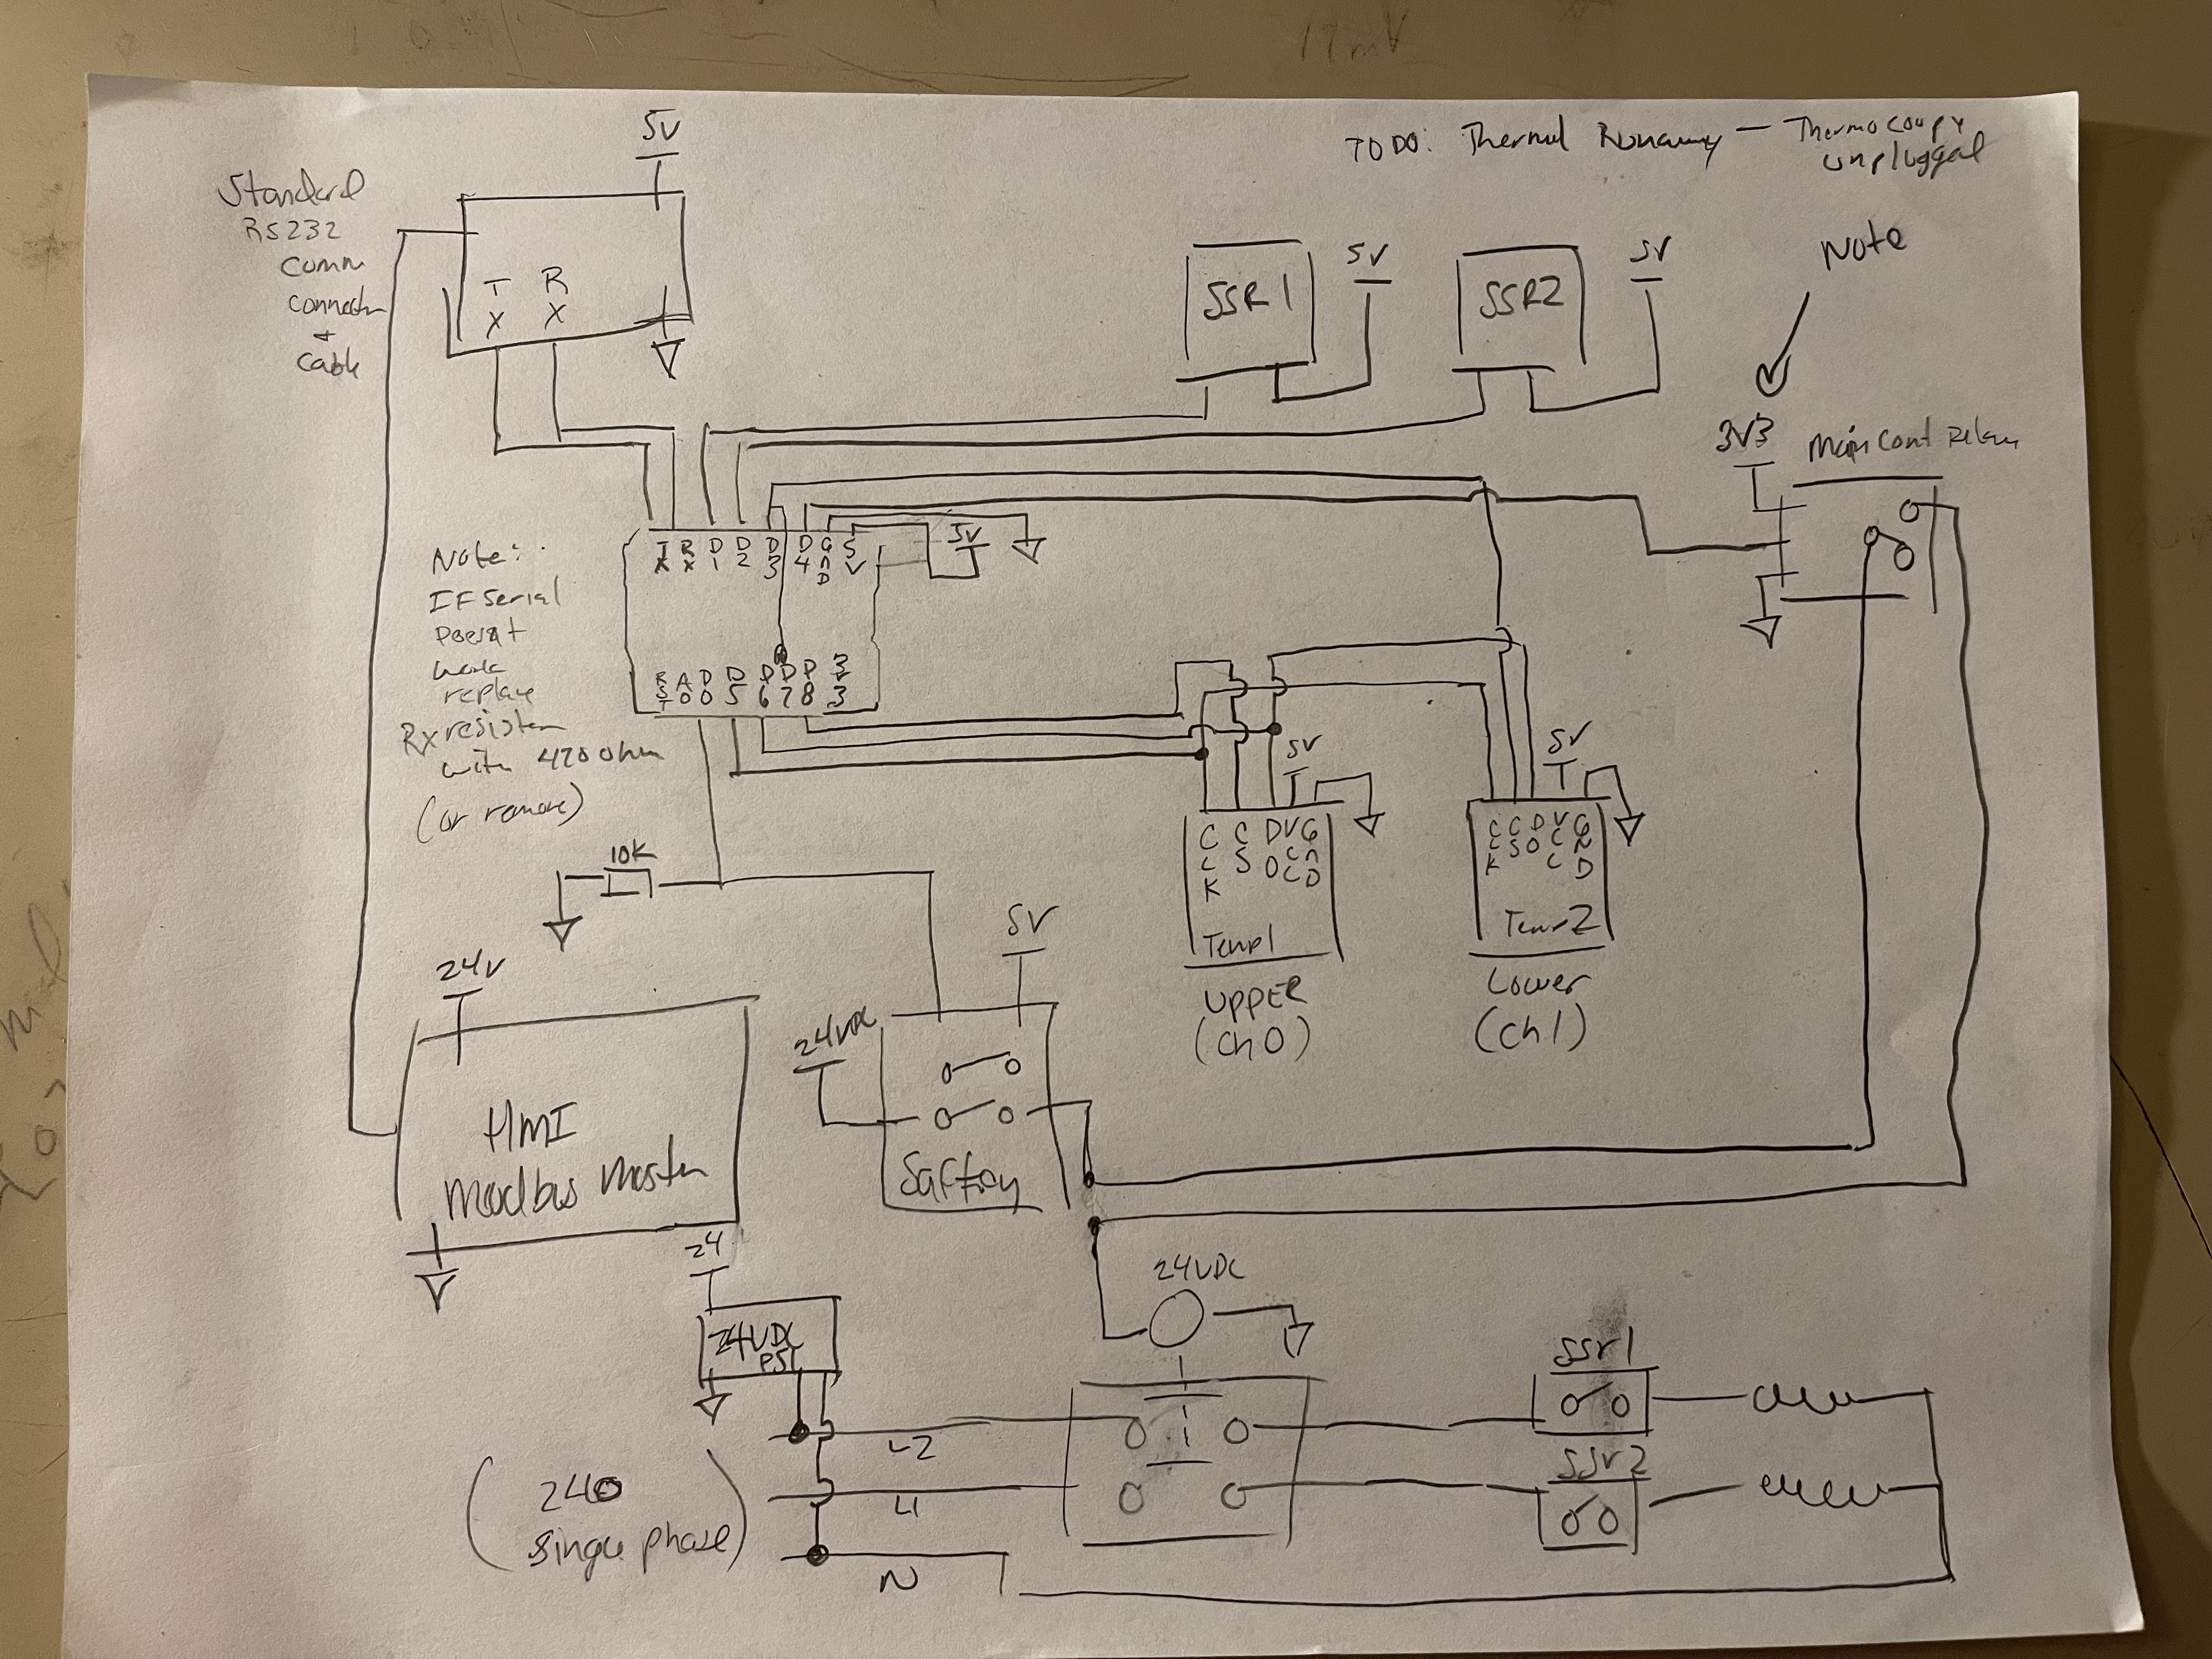 17mV
TODO: Thermal Runaway — Thermocouple
unplugged
5V
Standard
RS232
Comm
Connector
+
Cable
TX
RX
SSR1
5V
SSR2
5V
Note
3V3
Main Cont Relay
Note:
IF Serial
Doesnt
work
replace
Rx resistor
with 470 ohm
(or remove)
TX RX D1 D2 D3 D4 GND 5V
5V
RST A0 D0 D5 D6 D7 D8 3 3
5V
5V
CLK CS DO VCC GND
Temp1
UPPER
(Ch0)
CLK CS DO VCC GND
Temp2
Lower
(Ch1)
10K
24V
HMI
Modbus Master
5V
24VDC
Saftey
24
24VDC
PS1
24VDC
L2
L1
N
(240
single phase)
SSr1
SSr2